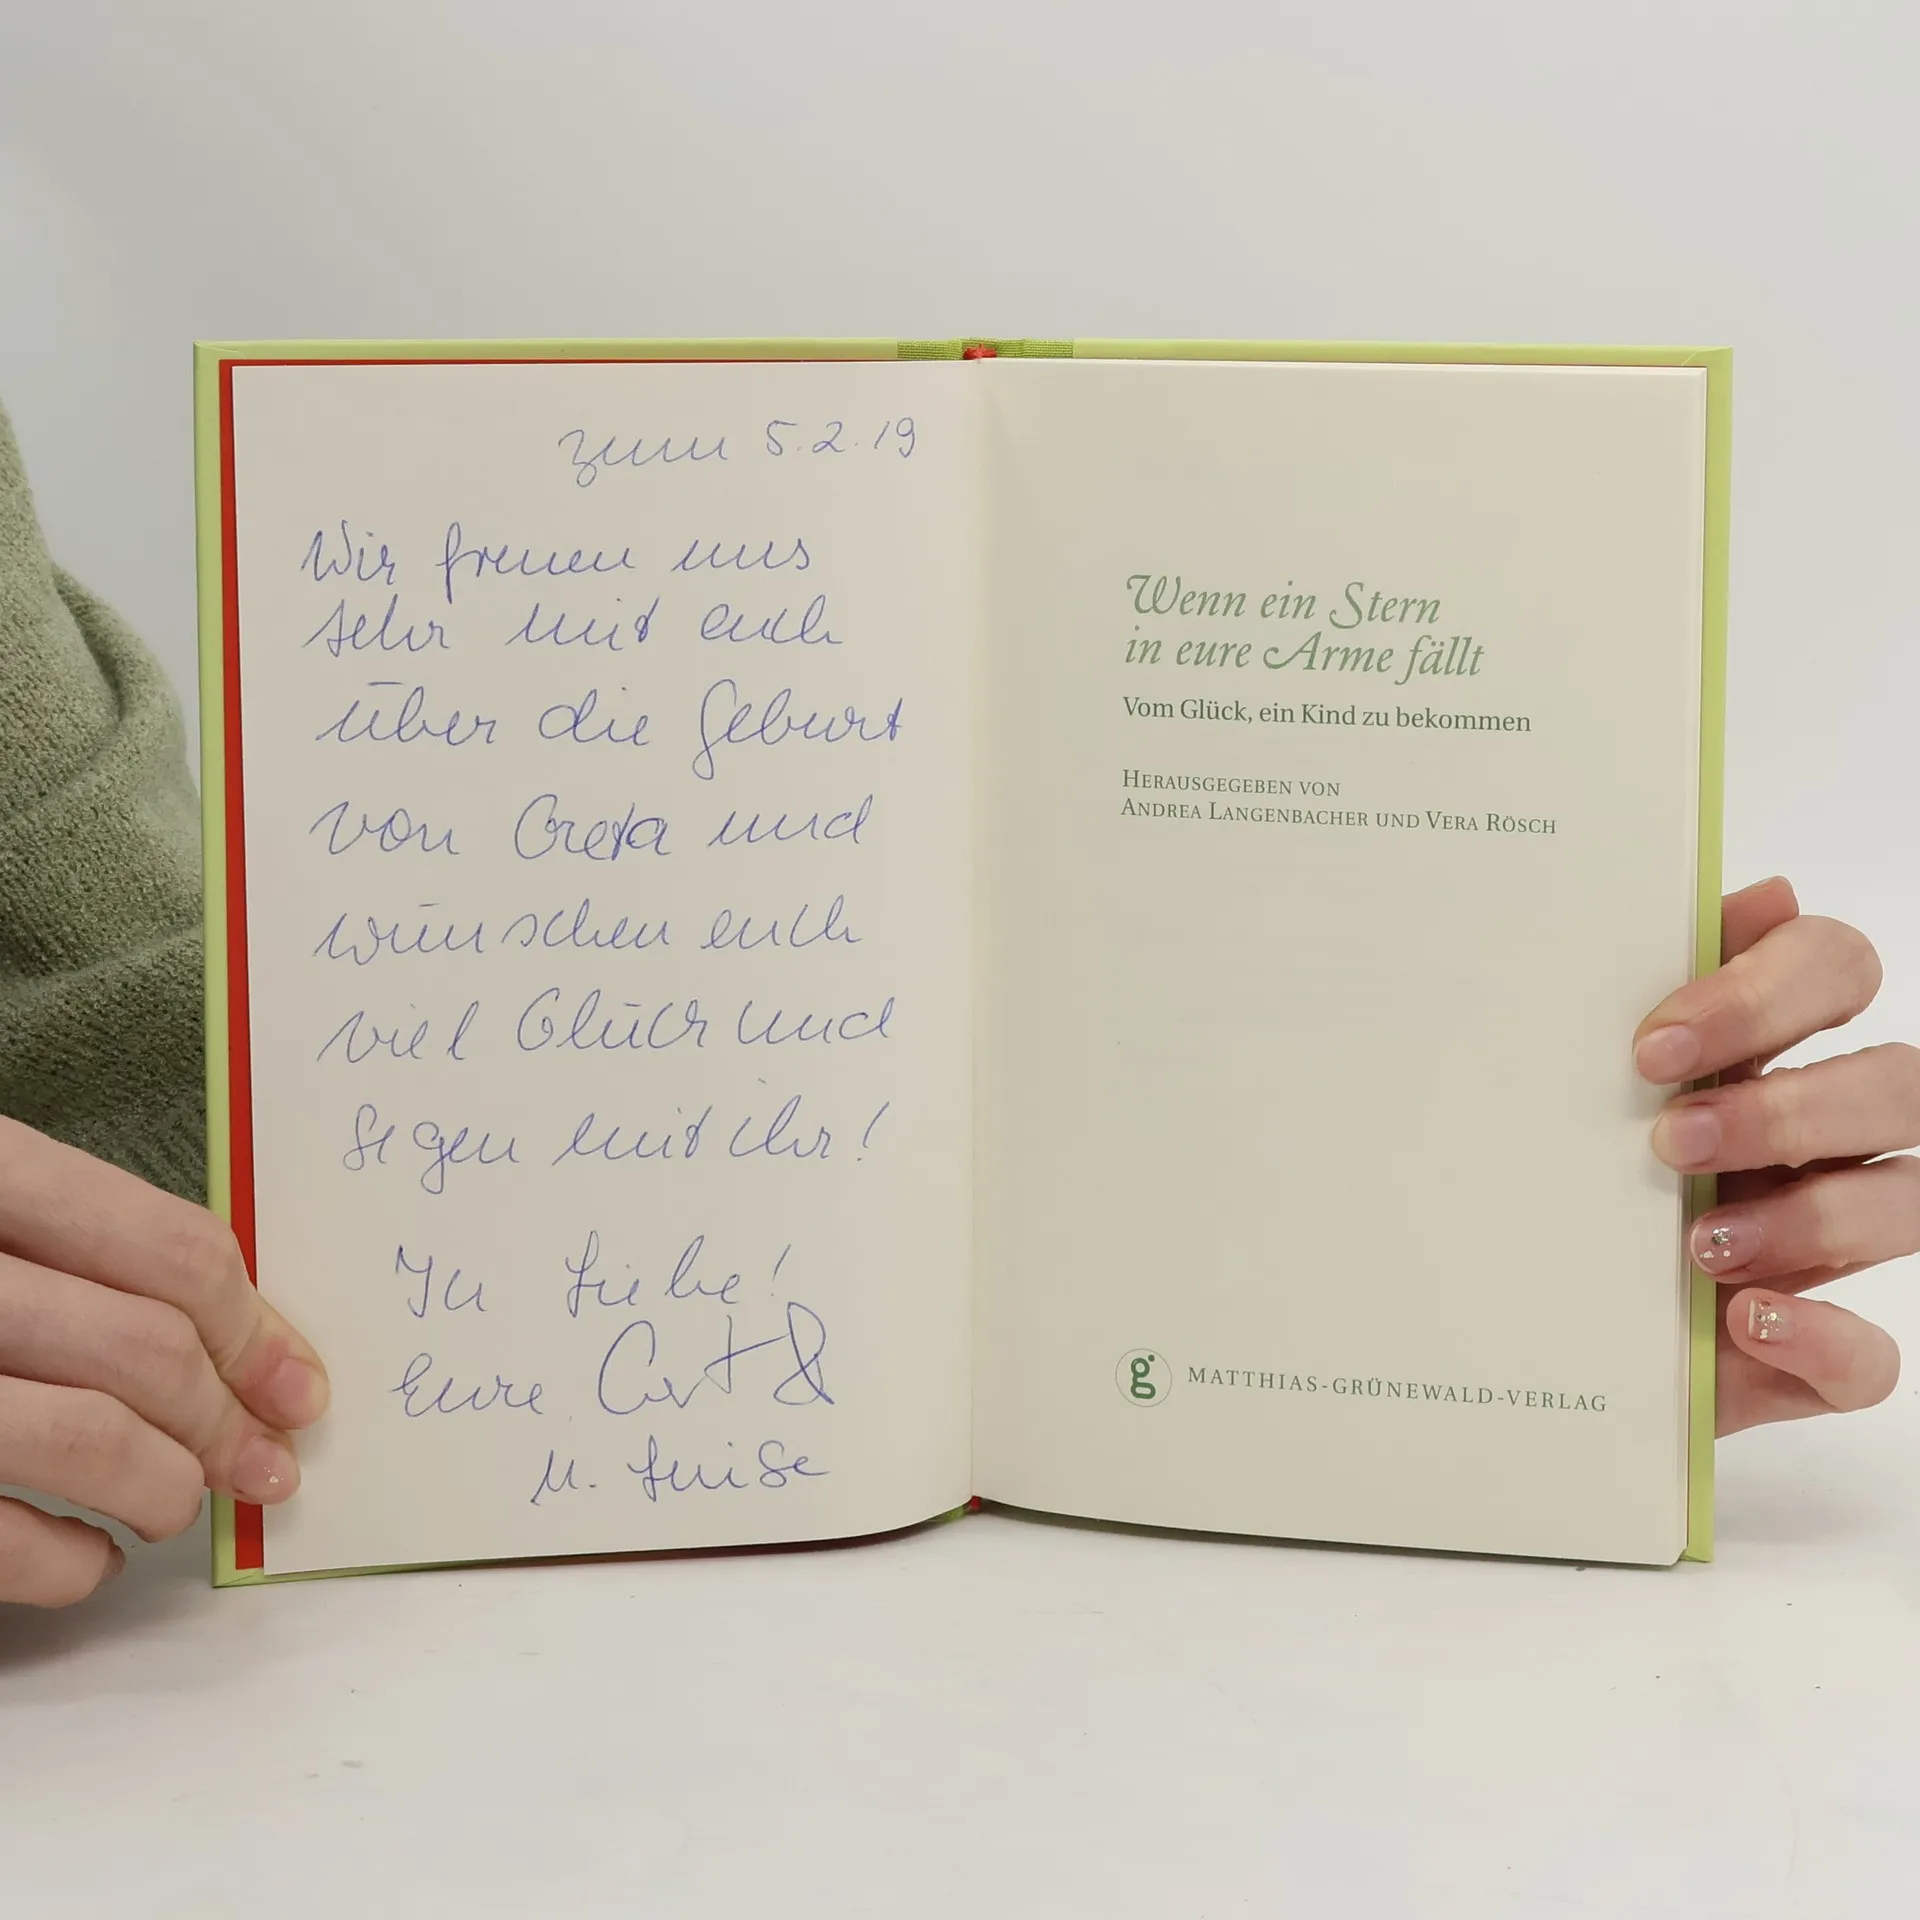 zum 5.2.19
Wir freuen uns
sehr mit euch
über die Geburt
von Greta und
wünschen euch
viel Glück und
Segen mit ihr!
In Liebe!
Eure
M. Luise
Wenn ein Stern
in eure Arme fällt
Vom Glück, ein Kind zu bekommen
HERAUSGEGEBEN VON
ANDREA LANGENBACHER UND VERA RÖSCH
g MATTHIAS-GRÜNEWALD-VERLAG